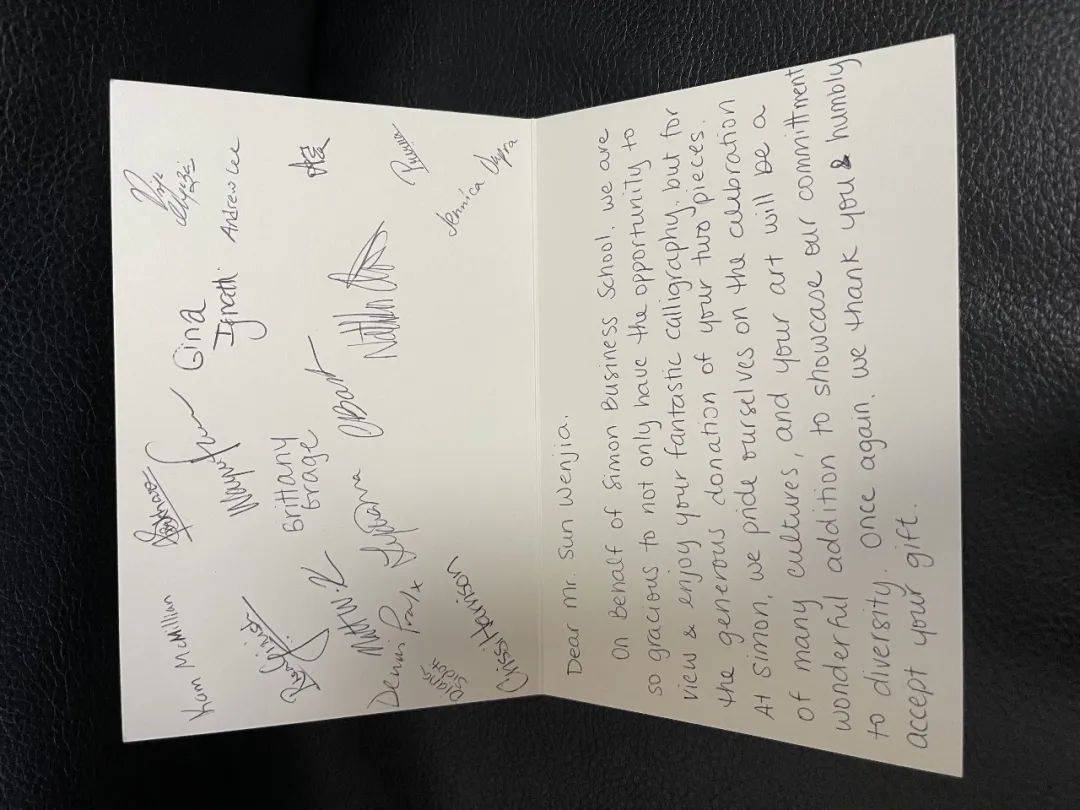 Dear Mr. Sun Wenjia.
On Behalf of Simon Business School, we are
so gracious to not only have the opportunity to
view & enjoy your fantastic calligraphy, but for
the generous donation of your two pieces.
At Simon, we pride ourselves on the celebration
of many cultures, and your art will be a
wonderful addition to showcase our committment
to diversity. Once again, we thank you & humbly
accept your gift.
Kam McMillian
Gina
Ignath
Andrew Lee
Brittany
Brage
Jennica
Chrissi Harrison